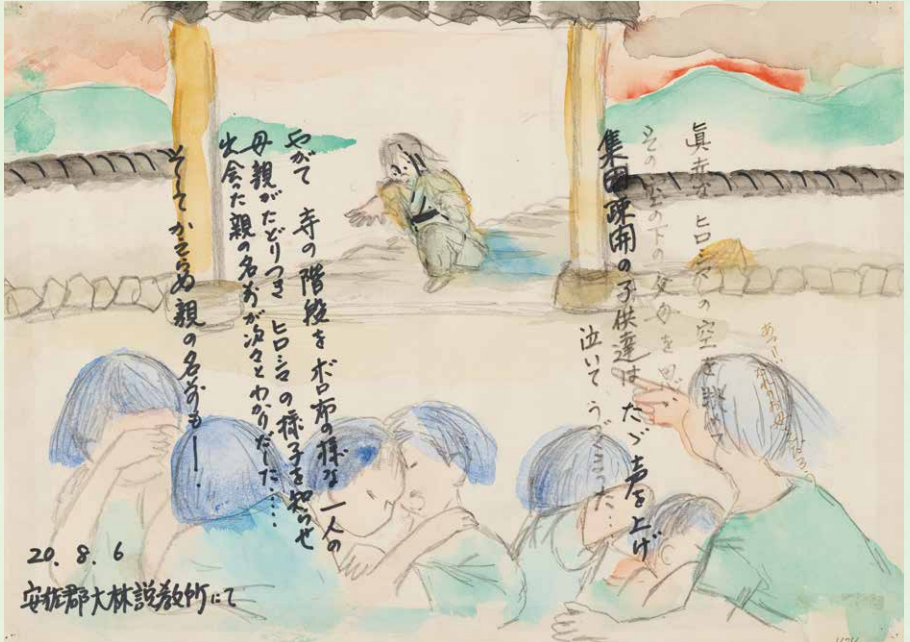 眞赤な ヒロシマの空を眺め
その空の下の父母を思
集団疎開の子供達は たゞ声を上げ
泣いて うづくまった…
やがて 寺の階段を ボロ布の様な 一人の
母親がたどりつき ヒロシマの様子を知らせ
出会った親の名前が次々とわかりだした……
そして かえらぬ親の名前も―
20. 8. 6
安佐郡大林説教所にて